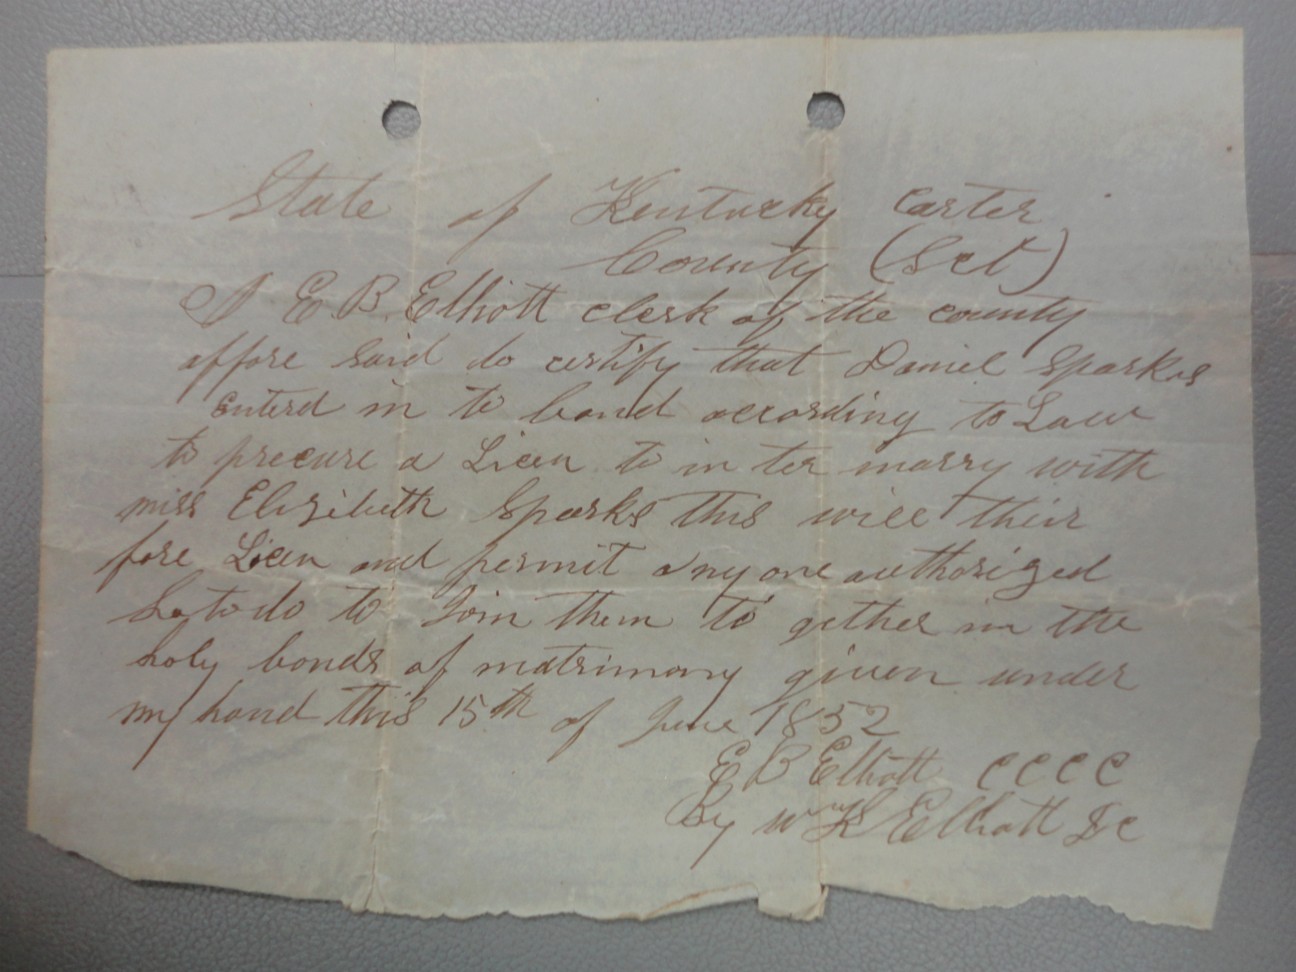 State of Kentucky Carter
County (Sct)
I E B Elliott clerk of the county
affore said do certify that Daniel Sparkes
enterd in to band acording to Law
to precure a Licen to in ter marry with
miss Elizibeth Sparks this will their
fore Licen and permit any one authorized
So to do to Join them to gether in the
holy bonds of matrimony given under
my hand this 15th of June 1852
E B Elliott CCCC
By Wm K Elliott Dc